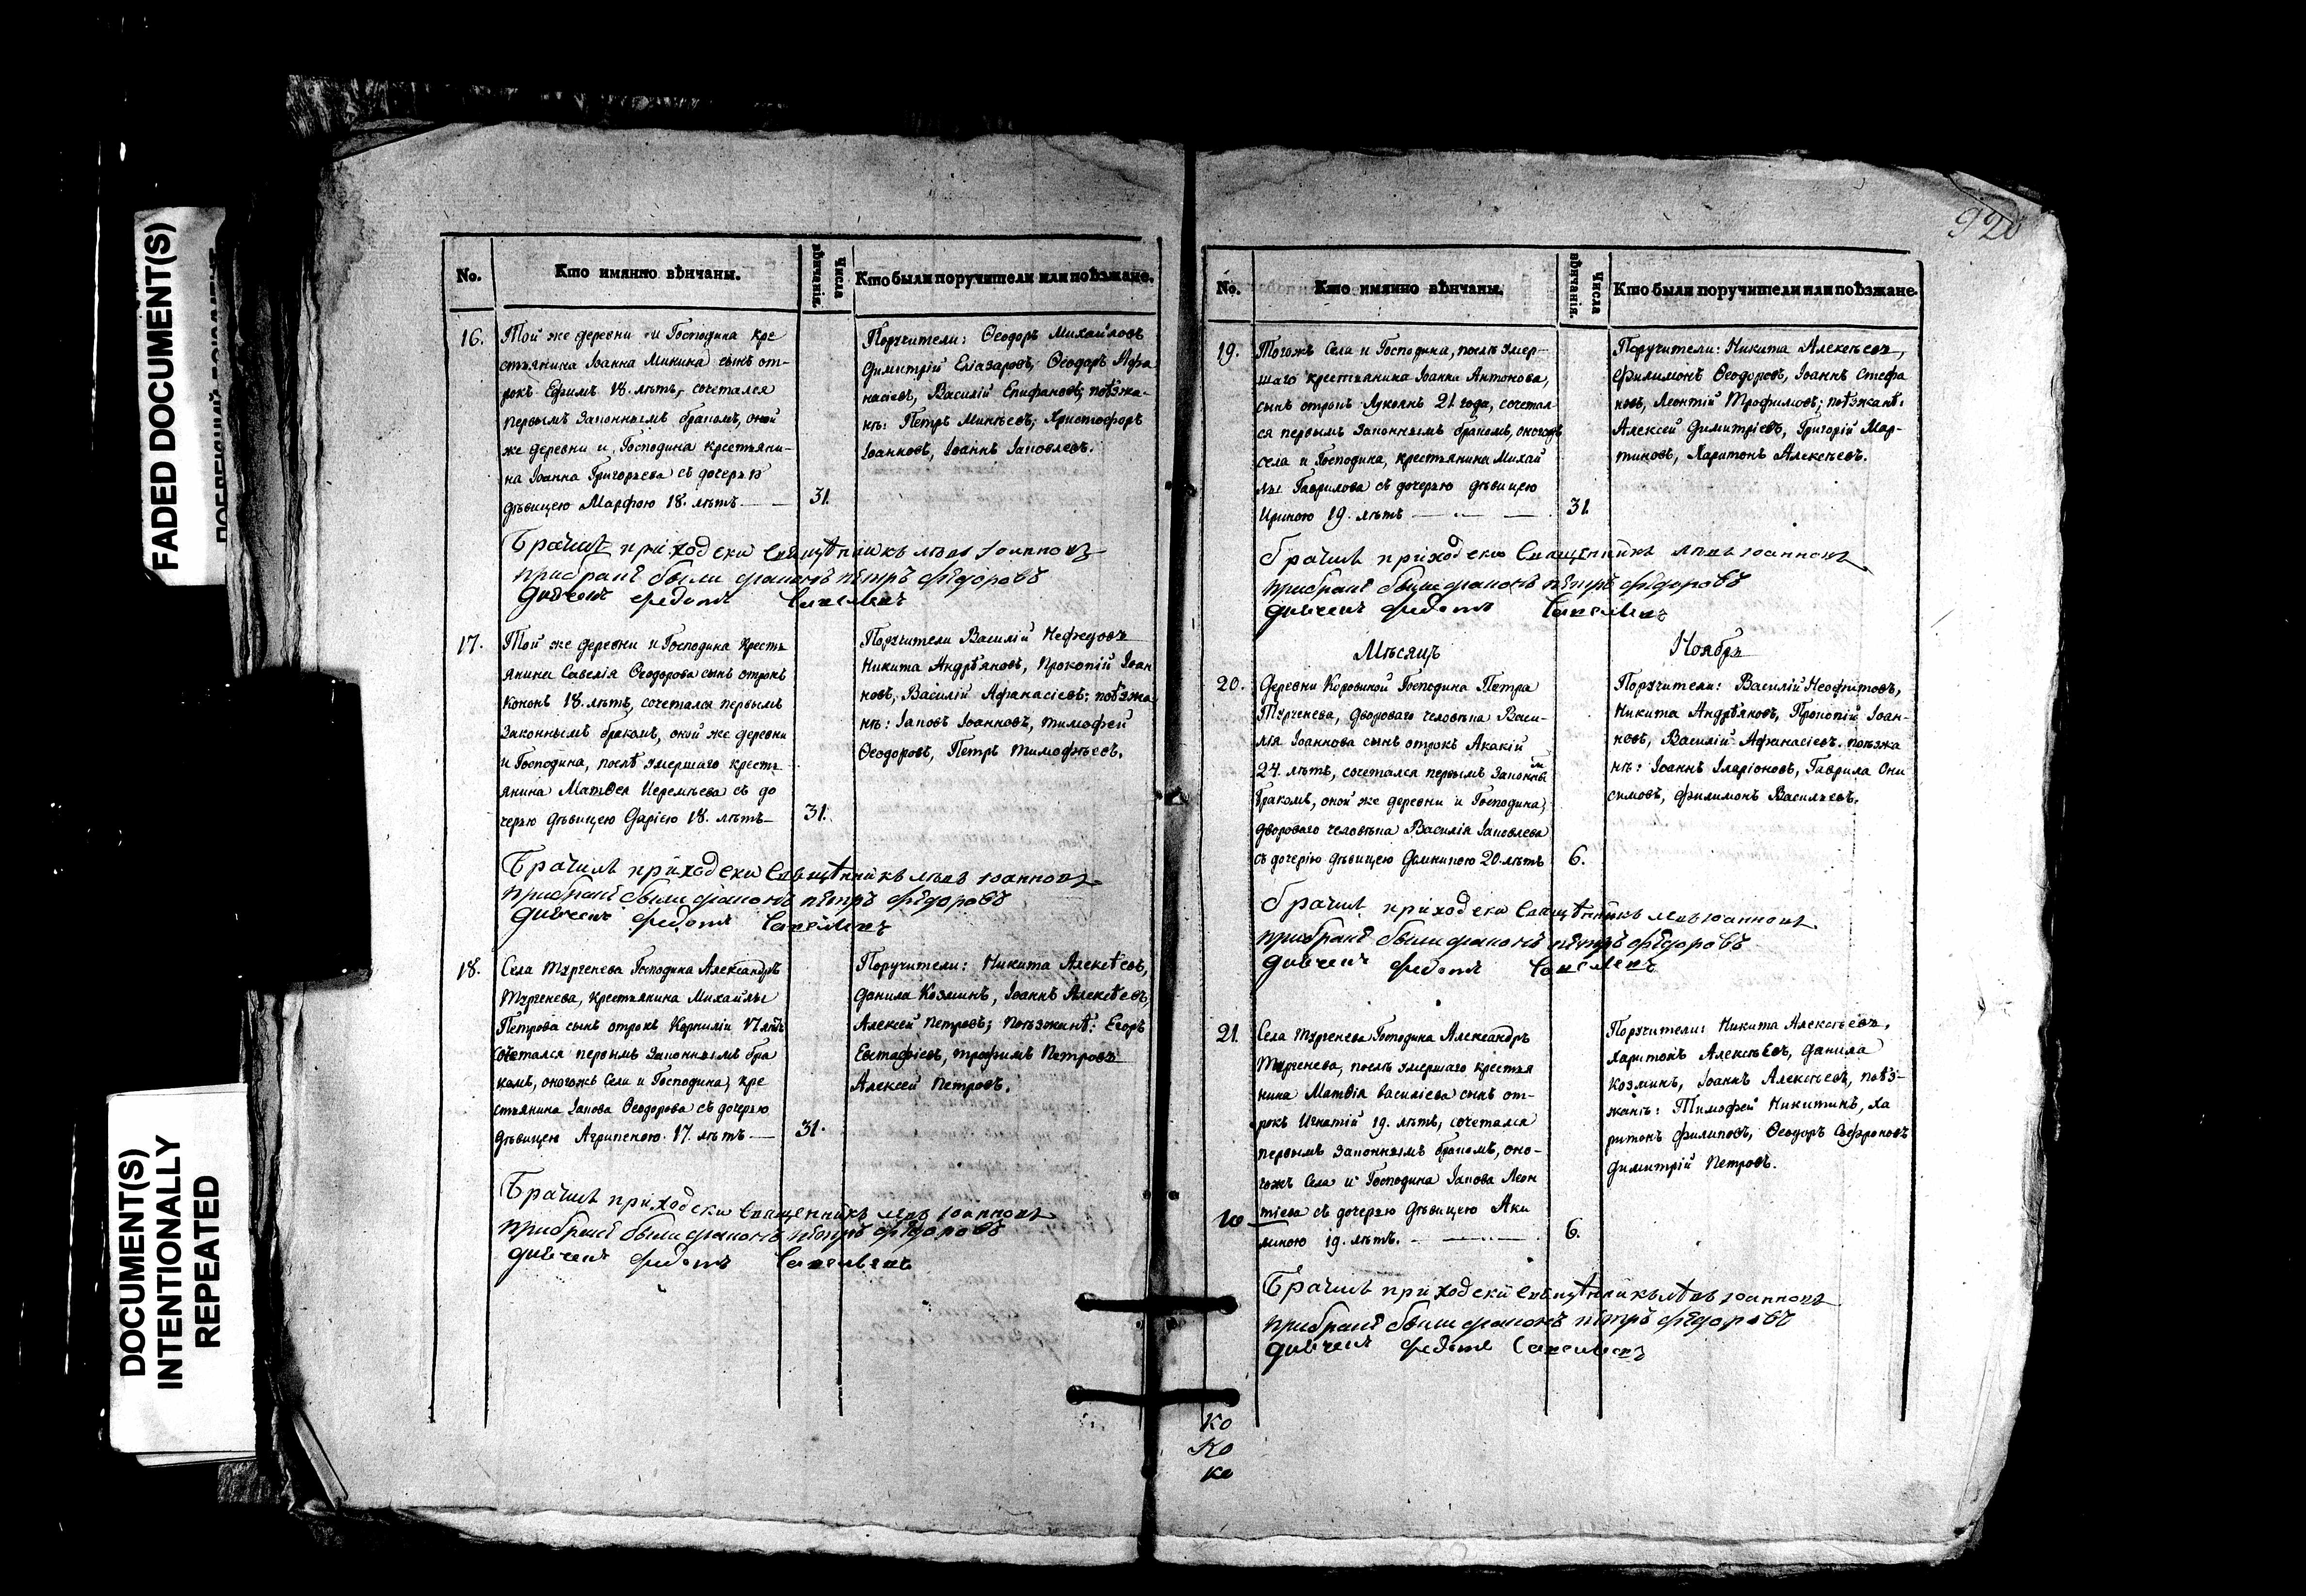 FADED DOCUMENT(S)
DOCUMENT(S)
INTENTIONALLY
REPEATED
No.
Кто имянно вѣнчаны.
Числа
вѣнчанія.
Кто были поручители или поѣзжане.
16.
Той же деревни и Господина кре
стьянина Іоанна Минина сынъ от-
рокъ Ефимъ 18. лѣтъ, сочетался
первымъ законнымъ бракомъ, оной
же деревни и Господина крестьяни-
на Іоанна Григорьева съ дочерью
дѣвицею Марфою 18. лѣтъ
31.
Поручители: Ѳеодоръ Михайловъ
Димитрій Елазаровъ, Ѳеодоръ Афа
насіевъ, Василій Епифановъ; поѣзжа-
нѣ: Петръ Минѣевъ; Христофоръ
Іоанновъ, Іоаннъ Іаковлевъ.
Брачилъ приходски Священникъ левъ Іоанновъ
прибрани были дьяконъ пѣтръ фѣдоровъ
дьячекъ федотъ Савельевъ
17.
Той же деревни и Господина кресть
янина Савелія Ѳеодорова сынъ отрокъ
Кононъ 18. лѣтъ, сочетался первымъ
Законнымъ бракомъ, оной же деревни
и Господина, послѣ умершаго кресть
янина Матѳея Иеремѣева съ до
черью дѣвицею Даріею 18. лѣтъ
31.
Поручители Василій Нефедовъ
Никита Андрѣяновъ, Прокопій Іоан
новъ, Василій Афанасіевъ; поѣзжа
нѣ: Іаковъ Іоанновъ, Тимофей
Ѳеодоровъ, Петръ Тимофѣевъ.
Брачилъ приходски Священникъ левъ Іоанновъ
прибрани были дьяконъ пѣтръ фѣдоровъ
дьячекъ федотъ Савельевъ
18.
Села Тургенева Господина Александръ
Тургенева, крестьянина Михайлы
Петрова сынъ отрокъ Корнилій 17 лѣтъ
сочетался первымъ законнымъ бра
комъ, оногожъ Села и Господина, кре
стьянина Іакова Ѳеодорова съ дочерью
дѣвицею Агрипеною 17. лѣтъ
31.
Поручители: Никита Алексѣевъ,
Данила Козминъ, Іоаннъ Алексѣевъ,
Алексей Петровъ; Поѣзжанѣ: Егоръ
Евстафіевъ, Трофимъ Петровъ
Алексей Петровъ.
Брачилъ приходски Священникъ левъ Іоанновъ
прибрани были дьяконъ пѣтръ фѣдоровъ
дьячекъ федотъ Савельевъ
920
No.
Кто имянно вѣнчаны.
Числа
вѣнчанія.
Кто были поручители или поѣзжане.
19.
Тогожъ Села и Господина, послѣ умер-
шаго крестьянина Іоанна Антонова,
сынъ отрокъ Лукьянъ 21 года, сочетал
ся первымъ законнымъ бракомъ, оногожъ
села и Господина, крестьянина Михай
лы Гаврилова съ дочерью дѣвицею
Ириною 19. лѣтъ
31.
Поручители: Никита Алексѣевъ,
Филимонъ Ѳеодоровъ, Іоаннъ Стефа
новъ, Леонтій Трофимовъ; поѣзжанѣ:
Алексей Димитріевъ, Григорій Мар-
тиновъ, Харитонъ Алексѣевъ.
Брачилъ приходски Священникъ левъ Іоанновъ
прибрани были дьяконъ пѣтръ фѣдоровъ
дьячекъ федотъ Савельевъ
Мѣсяцъ Ноябрь
20.
Деревни Коровиной Господина Петра
Тургенева, Двороваго человѣка Васи-
лія Іоаннова сынъ отрокъ Акакій
24. лѣтъ, сочетался первымъ Законнымъ
бракомъ, оной же деревни и Господина,
двороваго человѣка Василія Іаковлева
съ дочерію дѣвицею Домникою 20. лѣтъ
6.
Поручители: Василій Неофитовъ,
Никита Андрѣяновъ, Прокопій Іоан-
новъ, Василій Афанасіевъ. поѣзжа
нѣ: Іоаннъ Іларіоновъ, Гаврила Они
симовъ, Филимонъ Васильевъ.
Брачилъ приходски Священникъ левъ Іоанновъ
прибрани были дьяконъ пѣтръ фѣдоровъ
дьячекъ федотъ Савельевъ
21.
Села Тургенева Господина Александръ
Тургенева, послѣ умершаго крестья
нина Матѳія Василіева сынъ от-
рокъ Игнатій 19. лѣтъ, сочетался
первымъ законнымъ бракомъ, оно-
гожъ Села и Господина Іакова Леон
тіева съ дочерью дѣвицею Аки
линою 19. лѣтъ.
6.
Поручители: Никита Алексѣевъ,
Харитонъ Алексѣевъ, Данила
Козминъ, Іоаннъ Алексѣевъ, поѣз-
жанѣ: Тимофей Никитинъ, Ха
ритонъ Филиповъ, Ѳеодоръ Софроновъ
Димитрій Петровъ.
Брачилъ приходски Священникъ левъ Іоанновъ
прибрани были дьяконъ пѣтръ фѣдоровъ
дьячекъ федотъ Савельевъ
ко
Ко
ко